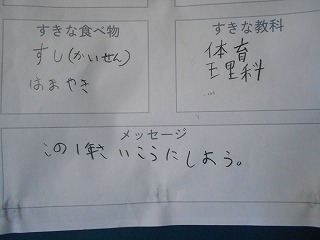 すきな食べ物
すし(かいせん)
はまやき
すきな教科
体育
理科
…
メッセージ
この1年さいこうにしよう。